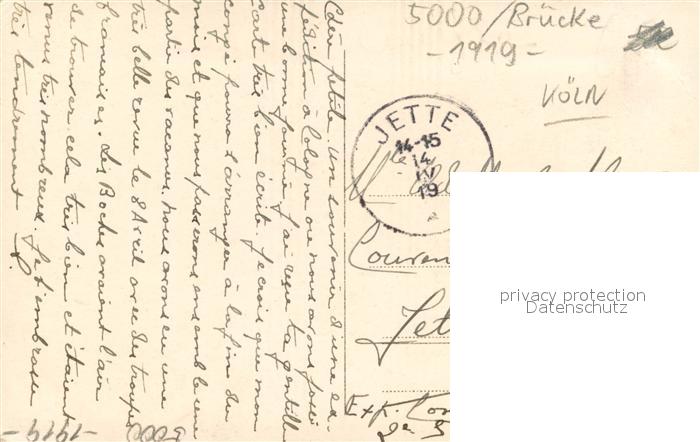 5000/Brücke
-1919-
KÖLN
JETTE
14-15
14
IV
19
Mlle
Couven
Jet
Exp.
privacy protection
Datenschutz
Chère petite, un souvenir d'une ex-
pédition à Cologne où nous avons passé
une bonne journée. J'ai reçu ta gentille
carte très bien écrite. Je crois que mon
congé pourra s'arranger à la fin du
mois et que nous passerons ensemble une
partie des vacances. Nous avons eu une
très belle revue le 8 Avril avec des troupes
françaises. Les Boches avaient l'air
de trouver cela très bien et étaient
venus très nombreux. Je t'embrasse
très tendrement
5000 -1919-